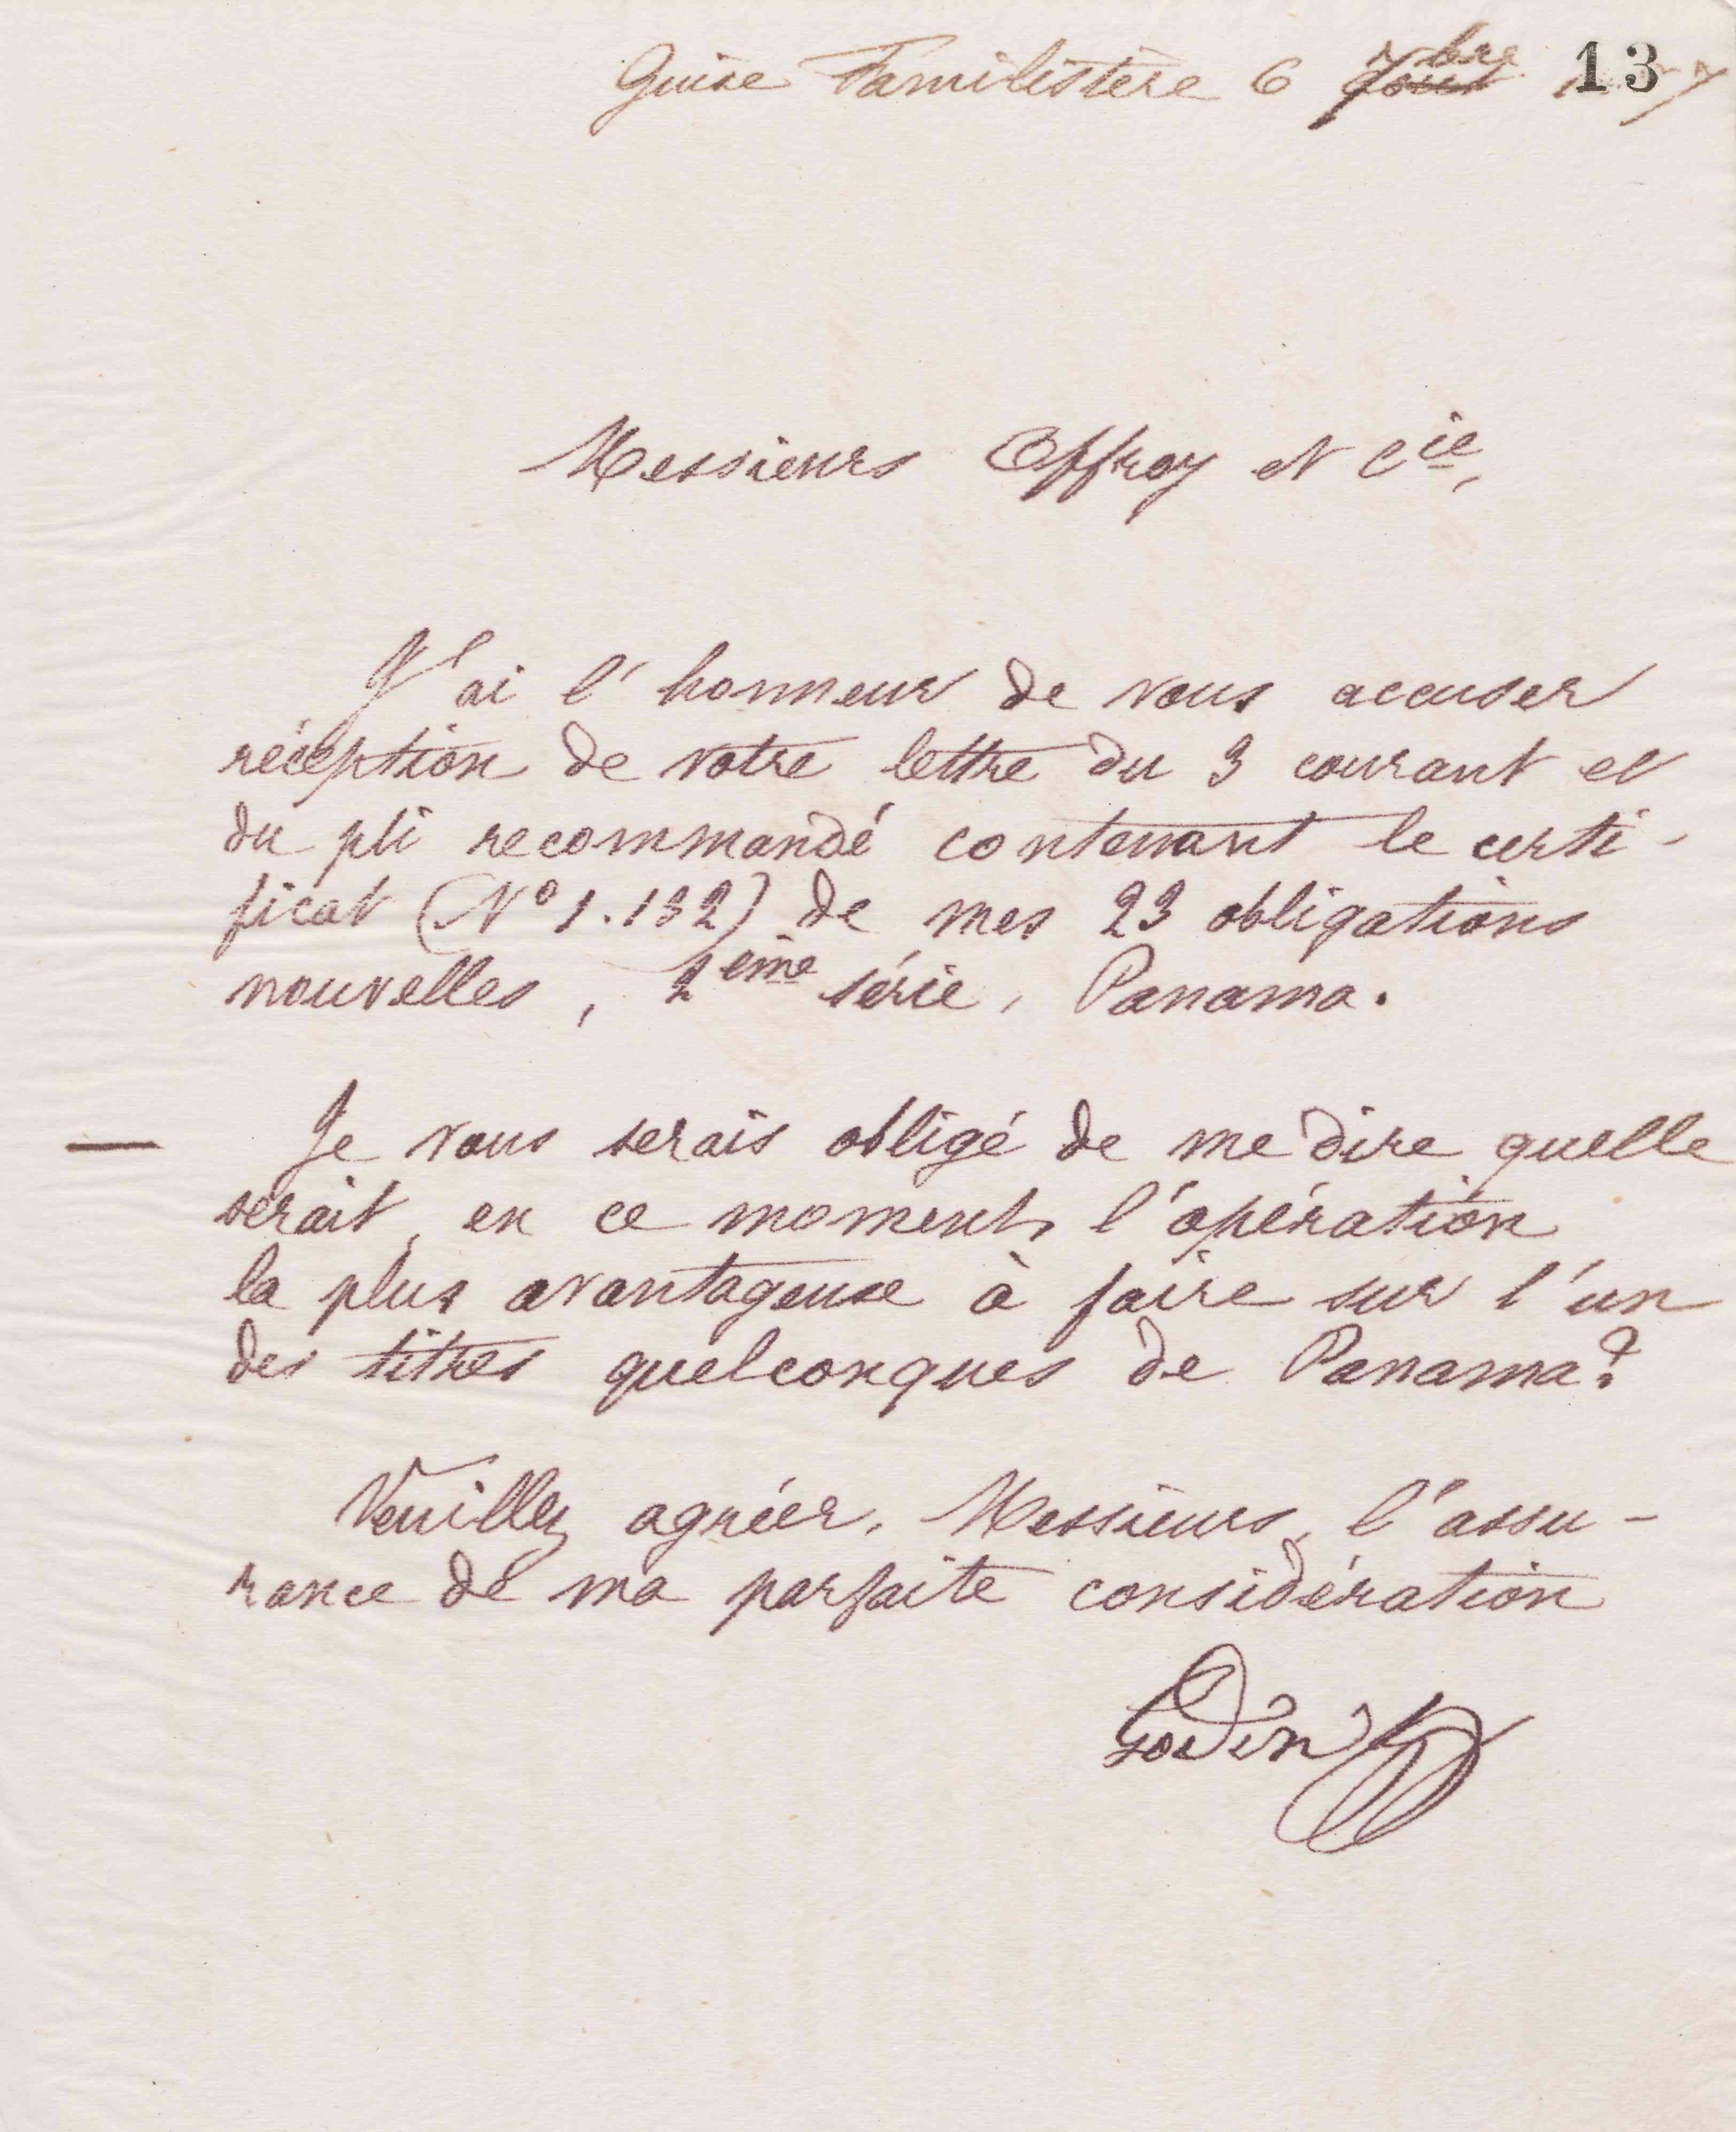 Guise Familistère 6 7bre 13
Messieurs Offroy et Cie,
J'ai l'honneur de vous accuser
réception de votre lettre du 3 courant et
du pli recommandé contenant le certi-
ficat (N° 1.132) de mes 23 obligations
nouvelles, 2ème série, Panama.
— Je vous serais obligé de me dire quelle
serait, en ce moment, l'opération
la plus avantageuse à faire sur l'un
des titres quelconques de Panama?
Veuillez agréer, Messieurs, l'assu-
rance de ma parfaite considération
Godin